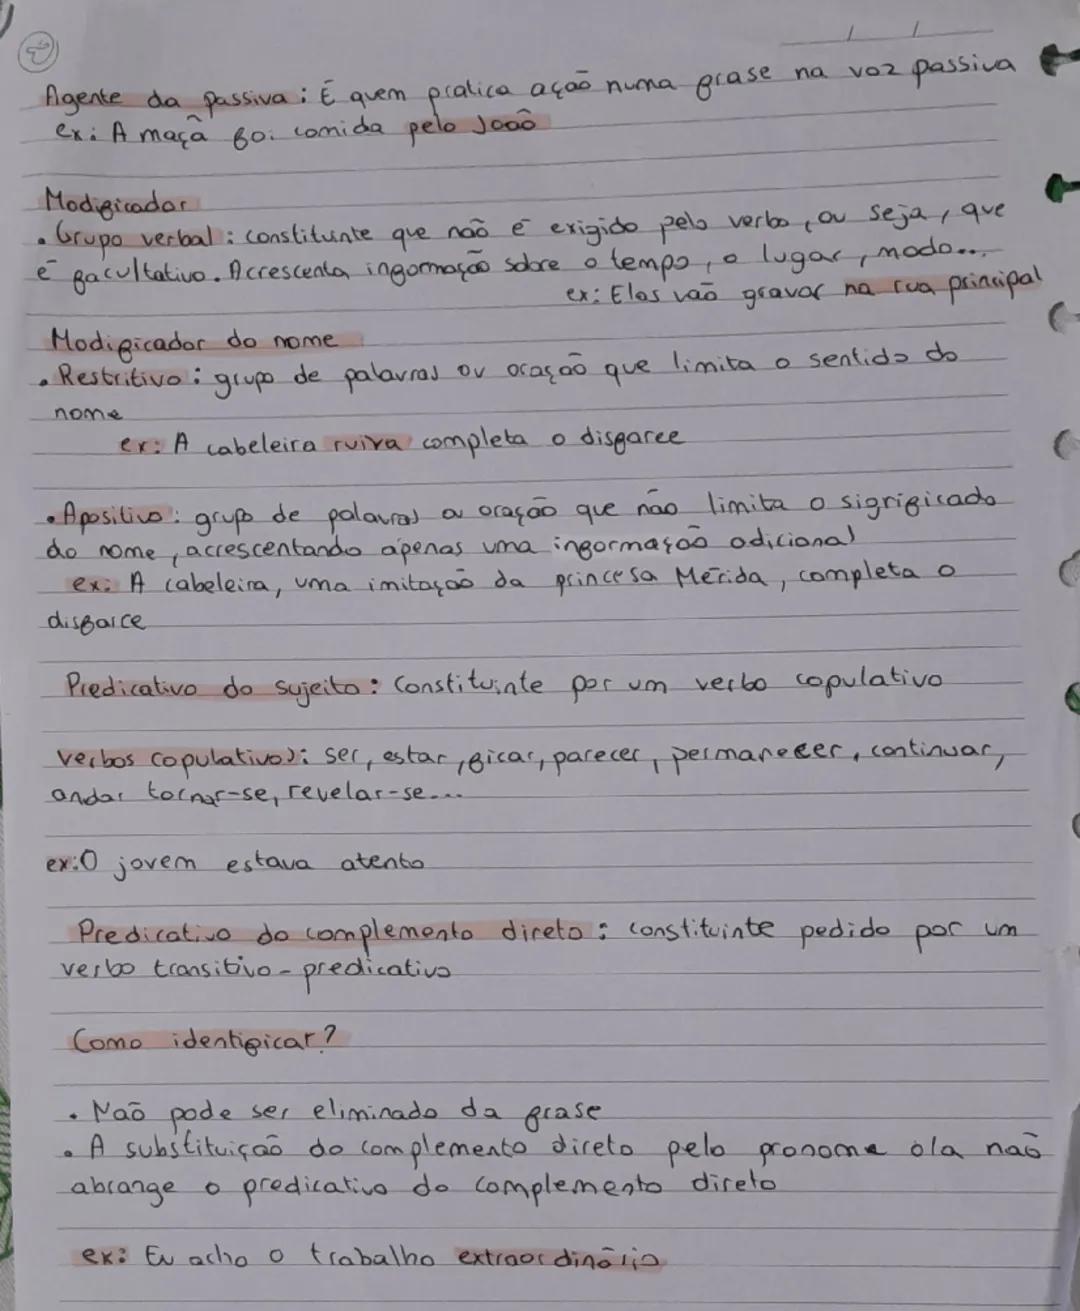 2
/ /
Agente da passiva: É quem pratica ação numa frase na voz passiva
ex: A maçã foi comida pelo João
Modificador
• Grupo verbal: constituinte que não é exigido pelo verbo, ou seja, que
é facultativo. Acrescenta informação sobre o tempo, o lugar, modo...
ex: Elas vão gravar na rua principal
Modificador do nome
• Restritivo: grupo de palavras ou oração que limita o sentido do
nome
ex: A cabeleira ruiva completa o disfarce
• Apositivo: grupo de palavras ou oração que não limita o significado
do nome, acrescentando apenas uma informação adicional
ex: A cabeleira, uma imitação da princesa Mérida, completa o
disfarce
Predicativo do sujeito: Constituinte por um verbo copulativo
Verbos copulativos: ser, estar, ficar, parecer, permanecer, continuar,
andar tornar-se, revelar-se...
ex: O jovem estava atento
Predicativo do complemento direto: constituinte pedido por um
verbo transitivo-predicativo
Como identificar?
• Não pode ser eliminado da frase
• A substituição do complemento direto pelo pronome o/a não
abrange o predicativo do complemento direto
ex: Eu acho o trabalho extraordinário